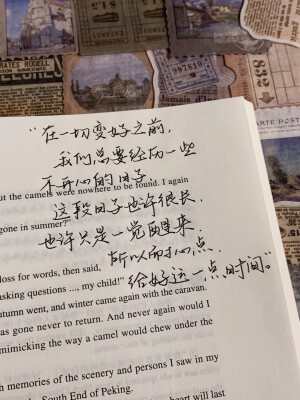 RATES RODELL
997810
Jamais d'In
832
CARTE POSTA
"在一切变好之前,
我们总要经历一些
不开心的日子
ut the camels were nowhere to be found. I again
这段日子也许很长.
gone in summer?"
也许只是一觉醒来.
loss for words, then said,
所以耐心点.
asking questions ..., my child!"
给好这一点时间。"
utumn went, and winter came again with the caravan.
as gone never to return. And never again would I
mimicking the way a camel would chew under the
h memories of the scenery and persons I saw in my
South End of Peking.
heart will last